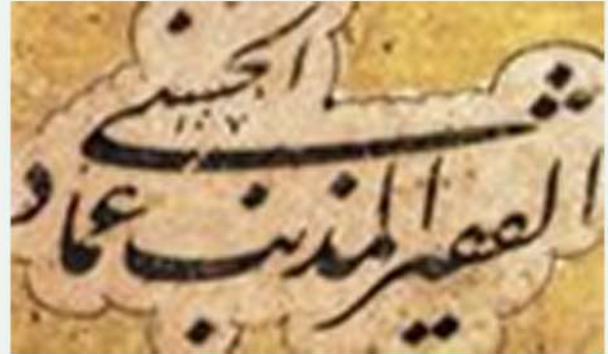 الفقير المذنب عماد
الحسنى